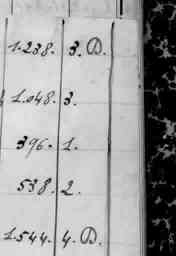 1.238. 3. D.
1.048. 3.
396. 1.
538. 2.
1.544. 4. D.